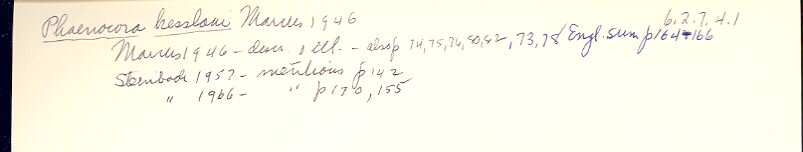 Phaenocora kesslaui Marcus 1946
6.2.7.4.1
Marcus 1946 - descr. & ill. - also p 74,75,76,80,82, 73,78 Engl. sum p164-166
Steinböck 1957 - mentions p 142
" 1966 - " p 170, 155